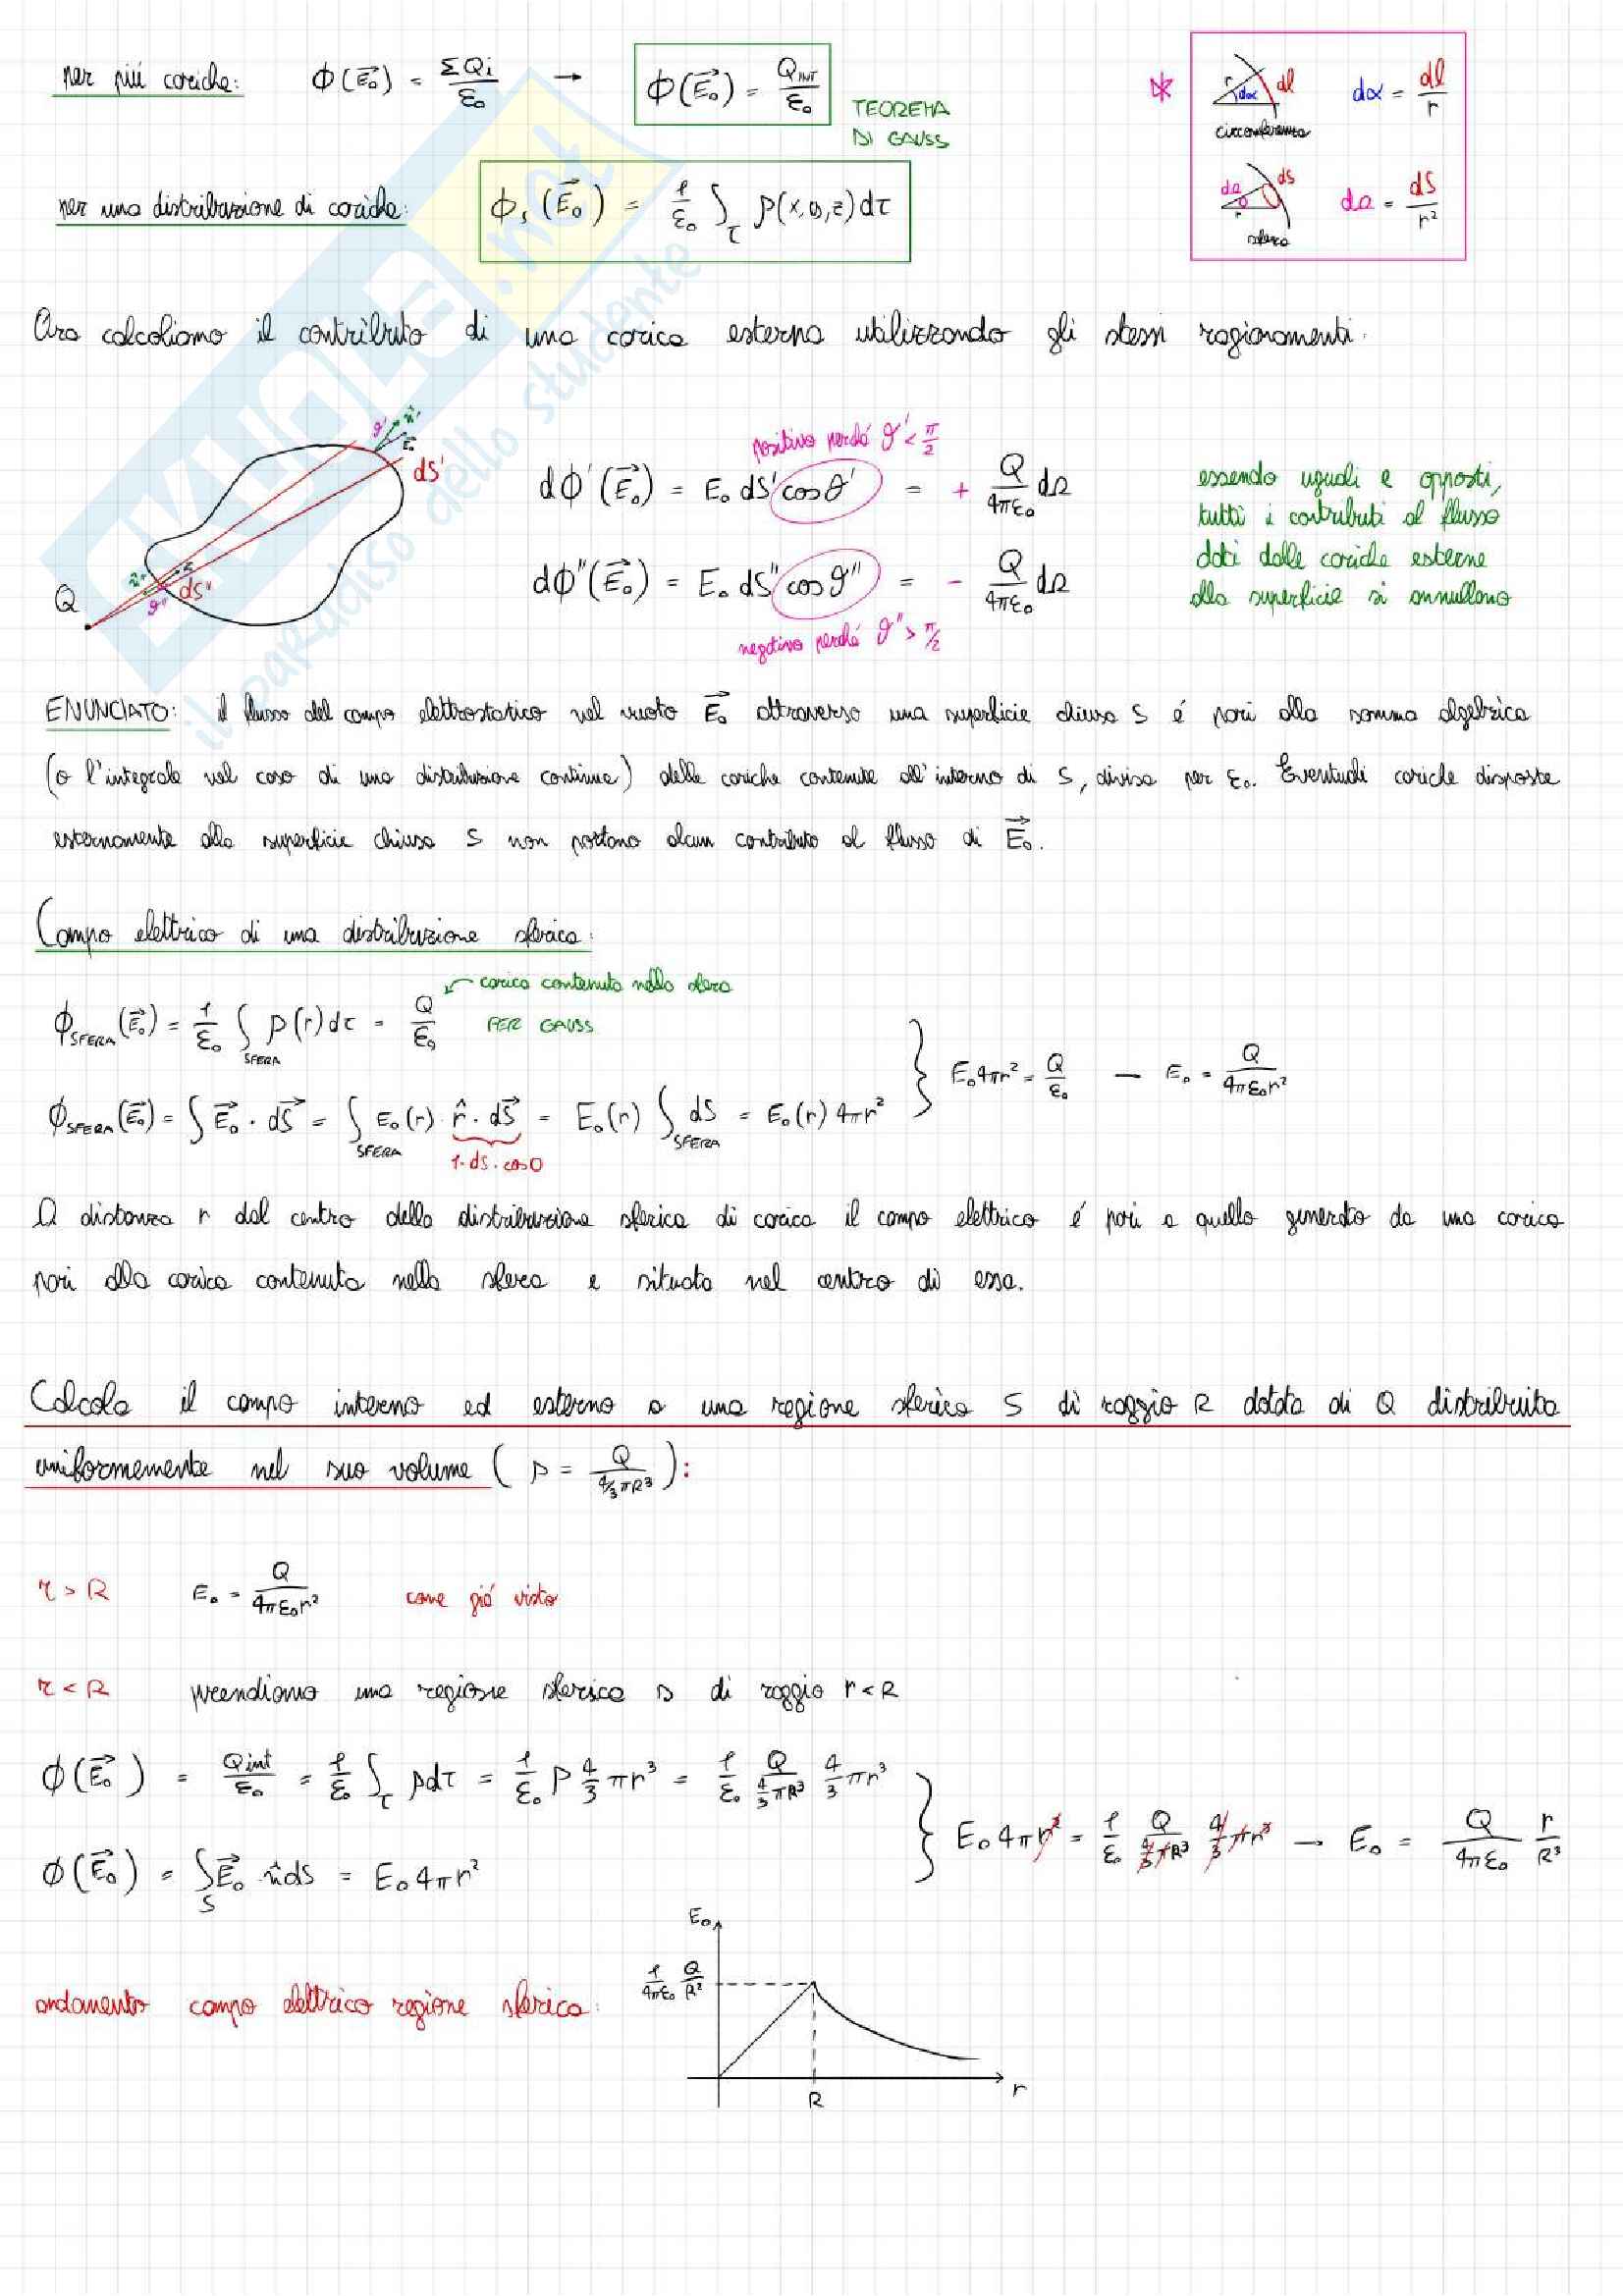 per più cariche: Φ(E₀) = ΣQi/ε₀ → Φ(E₀) = Q_INT/ε₀ TEOREMA DI GAUSS
dα = dl/r
circonferenza
per una distribuzione di cariche: Φ_s(E₀) = 1/ε₀ ∫_τ ρ(x,y,z)dτ
dΩ = dS/r²
sfera
Ora calcoliamo il contributo di una carica esterna utilizzando gli stessi ragionamenti.
positivo perché θ' < π/2
dΦ'(E₀) = E₀ dS' cosθ' = + Q/4πε₀ dΩ
dΦ''(E₀) = E₀ dS'' cosθ'' = − Q/4πε₀ dΩ
negativo perché θ'' > π/2
essendo uguali e opposti,
tutti i contributi al flusso
dati dalle cariche esterne
alla superficie si annullano
Q
dS'
dS''
ENUNCIATO: il flusso del campo elettrostatico nel vuoto E₀ attraverso una superficie chiusa S é pari alla somma algebrica
(o l'integrale nel caso di una distribuzione continua) delle cariche contenute all'interno di S, divisa per ε₀. Eventuali cariche disposte
esternamente alla superficie chiusa S non portano alcun contributo al flusso di E₀.
Campo elettrico di una distribuzione sferica:
carica contenuta nella sfera
Φ_SFERA(E₀) = 1/ε₀ ∫_SFERA ρ(r)dτ = Q/ε₀ PER GAUSS
Φ_SFERA(E₀) = ∫E₀ · dS = ∫_SFERA E₀(r) · r̂ · dS = E₀(r) ∫_SFERA dS = E₀(r) 4πr²
1·dS·cos0
E₀4πr² = Q/ε₀ — E₀ = Q/4πε₀r²
A distanza r dal centro della distribuzione sferica di carica il campo elettrico é pari a quello generato da una carica
pari alla carica contenuta nella sfera e situata nel centro di essa.
Calcola il campo interno ed esterno a una regione sferica S di raggio R dotata di Q distribuita
uniformemente nel suo volume (ρ = Q/(4/3πR³)):
r > R E₀ = Q/4πε₀r² come giá visto
r < R prendiamo una regione sferica s di raggio r < R
Φ(E₀) = Qint/ε₀ = 1/ε₀ ∫_τ ρdτ = 1/ε₀ ρ 4/3 πr³ = 1/ε₀ Q/(4/3πR³) 4/3 πr³
Φ(E₀) = ∫_S E₀ · n̂dS = E₀4πr²
E₀4πr² = 1/ε₀ Q/(4/3πR³) 4/3πr³ → E₀ = Q/4πε₀ r/R³
andamento campo elettrico regione sferica:
E₀
1/4πε₀ Q/R²
R
r
SKUOLA.net
il paradiso dello studente